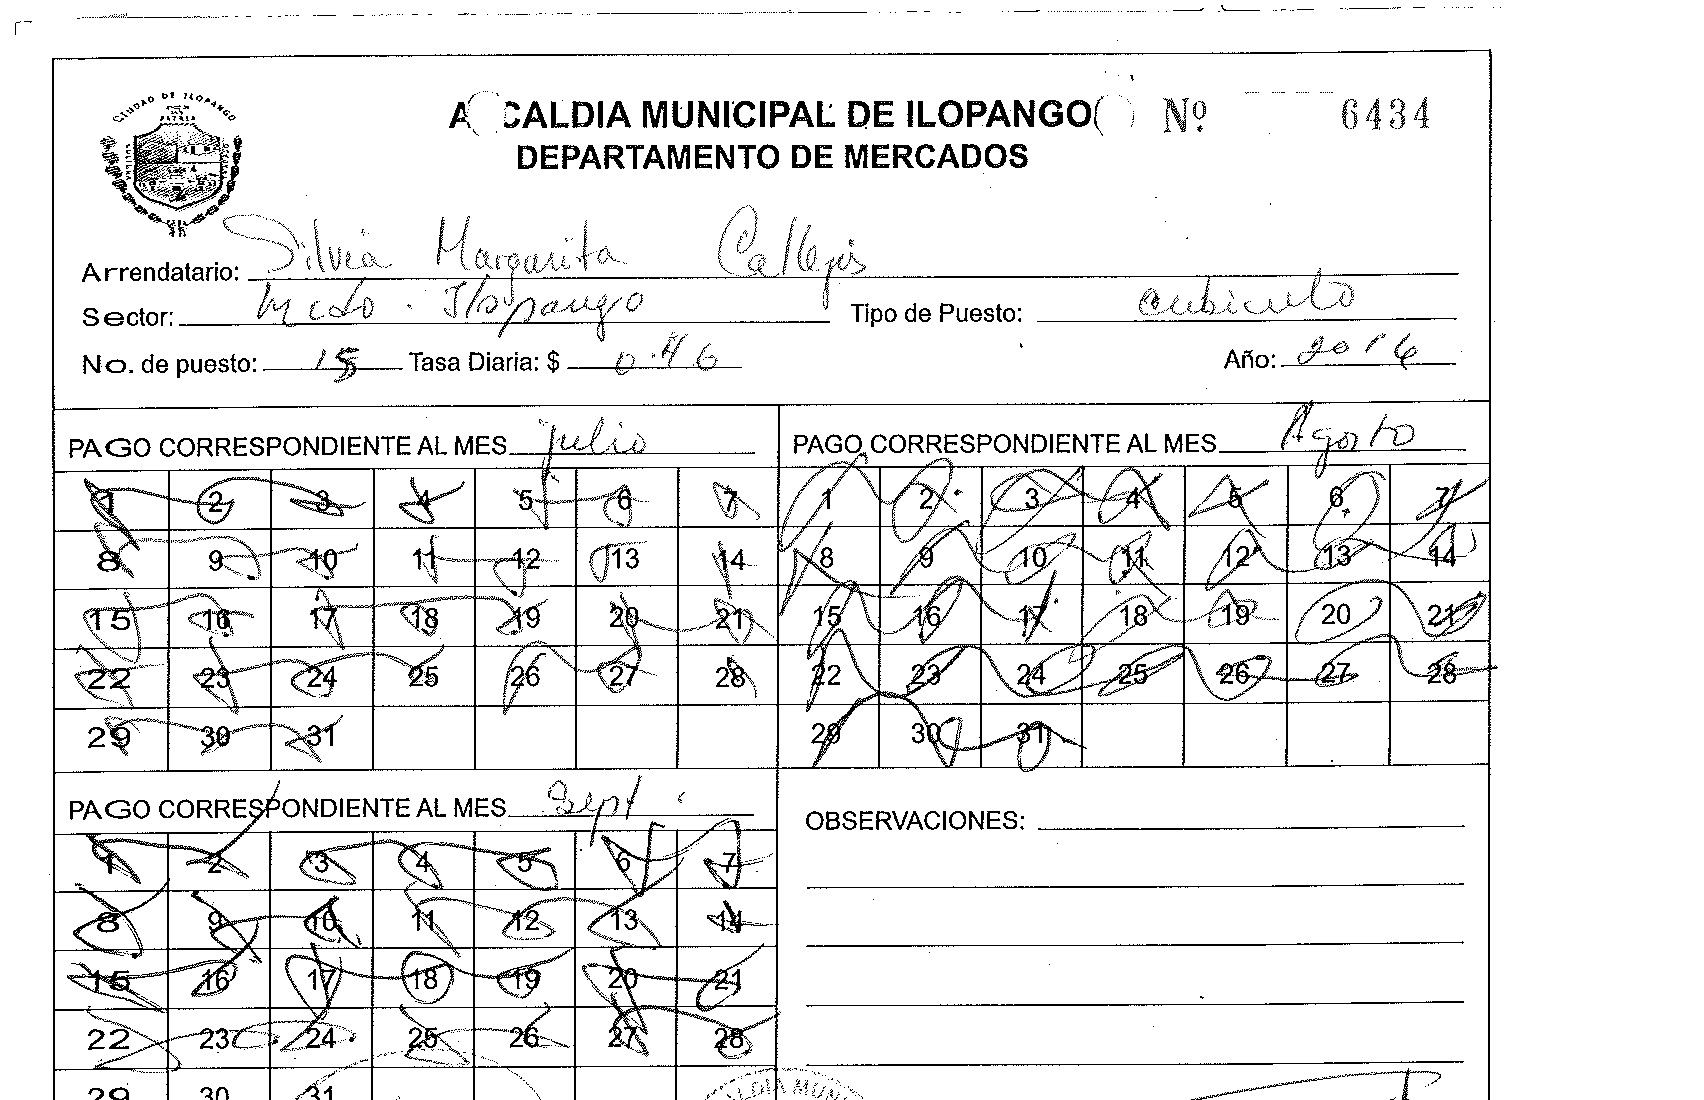 CIUDAD DE ILOPANGO
PATRIA
ALCALDIA MUNICIPAL DE ILOPANGO
Nº 6434
DEPARTAMENTO DE MERCADOS
Arrendatario: Silvia Margarita Callejas
Sector: Mcdo. Ilopango Tipo de Puesto: cubiculo
No. de puesto: 15 Tasa Diaria: $ 0.46 Año: 2016
PAGO CORRESPONDIENTE AL MES julio
1 2 3 4 5 6 7
8 9 10 11 12 13 14
15 16 17 18 19 20 21
22 23 24 25 26 27 28
29 30 31
PAGO CORRESPONDIENTE AL MES Agosto
1 2 3 4 5 6 7
8 9 10 11 12 13 14
15 16 17 18 19 20 21
22 23 24 25 26 27 28
29 30 31
PAGO CORRESPONDIENTE AL MES Sept.
1 2 3 4 5 6 7
8 9 10 11 12 13 14
15 16 17 18 19 20 21
22 23 24 25 26 27 28
29 30 31
OBSERVACIONES: